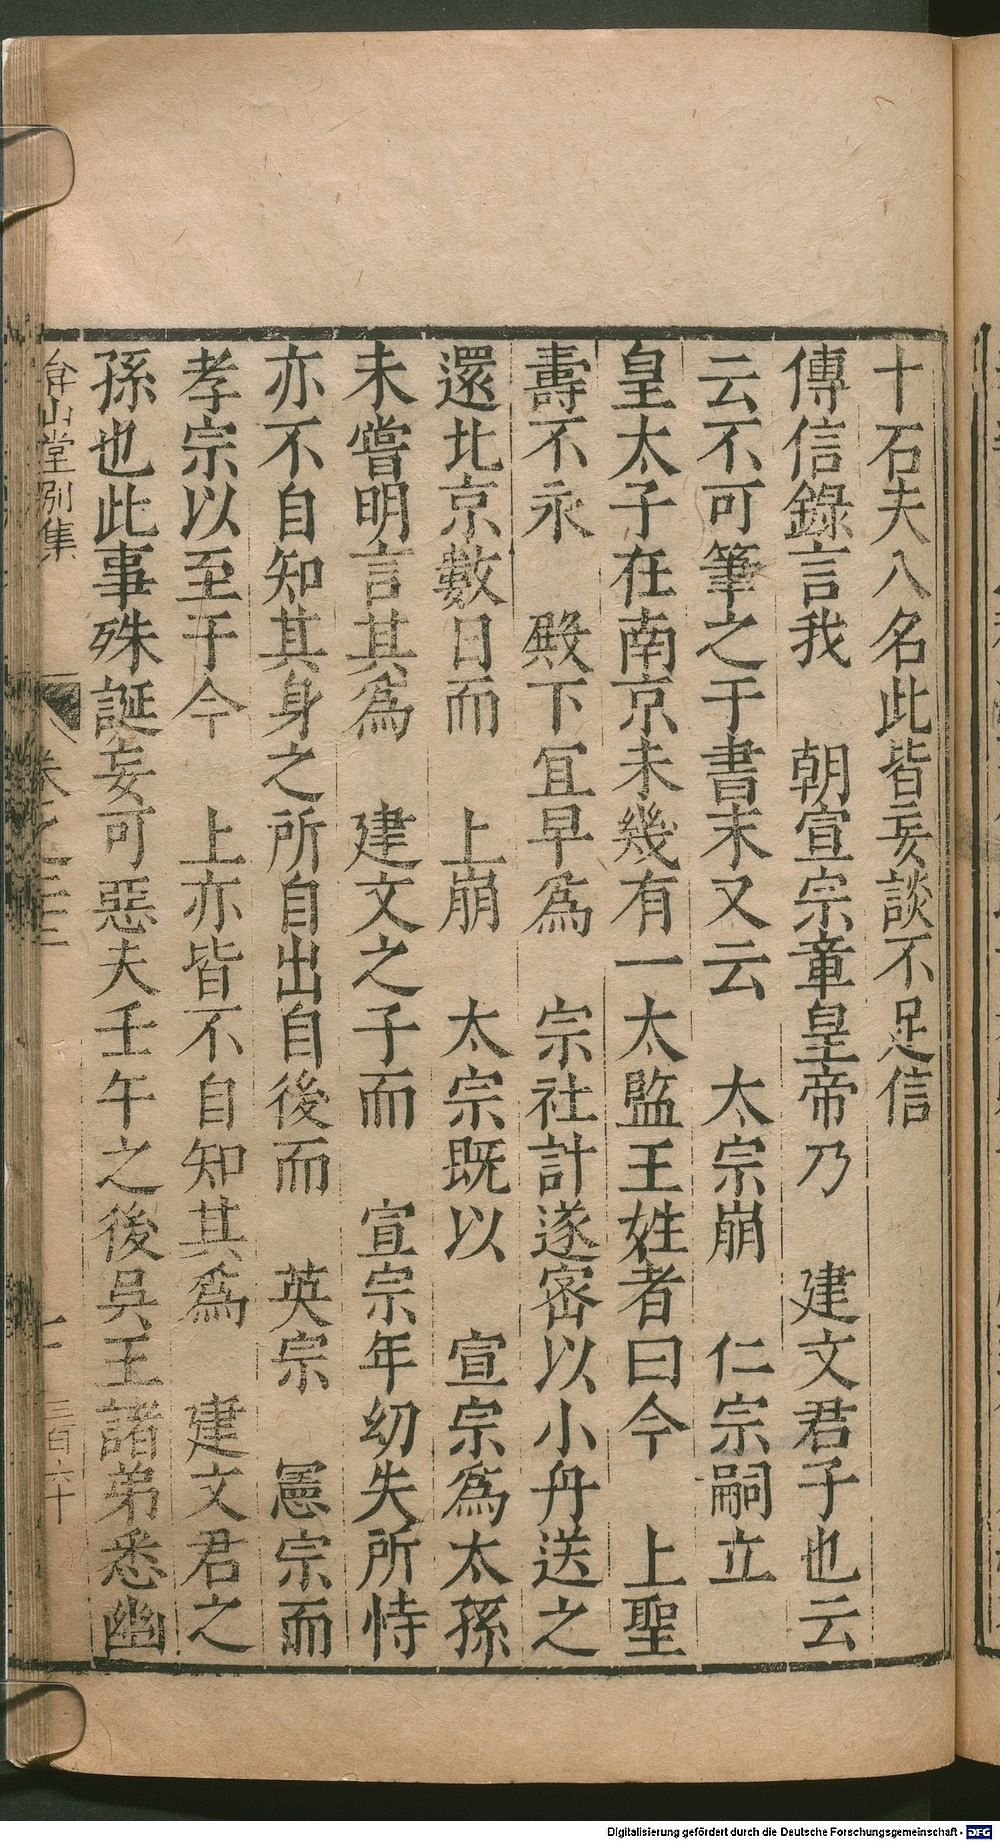 十石夫八名此皆妄談不足信
傳信錄言我　朝宣宗章皇帝乃　建文君子也云
云不可筆之于書末又云　太宗崩　仁宗嗣立
皇太子在南京未幾有一太監王姓者曰今　上聖
壽不永　殿下冝早爲　宗社計遂密以小舟送之
還北京數日而　上崩　太宗既以　宣宗爲太孫
未嘗明言其爲　建文之子而　宣宗年幼失所恃
亦不自知其身之所自出自後而　英宗　憲宗而
孝宗以至于今　上亦皆不自知其爲　建文君之
孫也此事殊誕妄可惡夫壬午之後吳王諸弟悉幽
弇山堂別集　卷之二十二　十一　三百六十
Digitalisierung gefördert durch die Deutsche Forschungsgemeinschaft - DFG